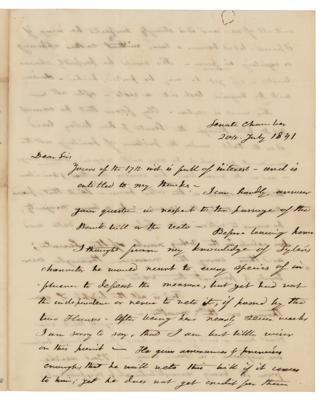 Senate Chamber
20th July 1841
Dear Sir,
Yours of the 17th inst is full of interest - and is
entitled to my thanks - I can hardly answer
your question in respect to the passage of the
Bank bill or the veto - Before leaving home
I thought from my knowledge of Tyler's
character he would resort to every species of in-
fluence to defeat the measure, but yet had not
the independence or nerve to veto it, if passed by the
two Houses. After being here nearly seven weeks
I am sorry to say, that I am but little wiser
on this point - He gives assurances & promises
enough that he will veto this bill if it comes
to him, yet he does not get credit for them